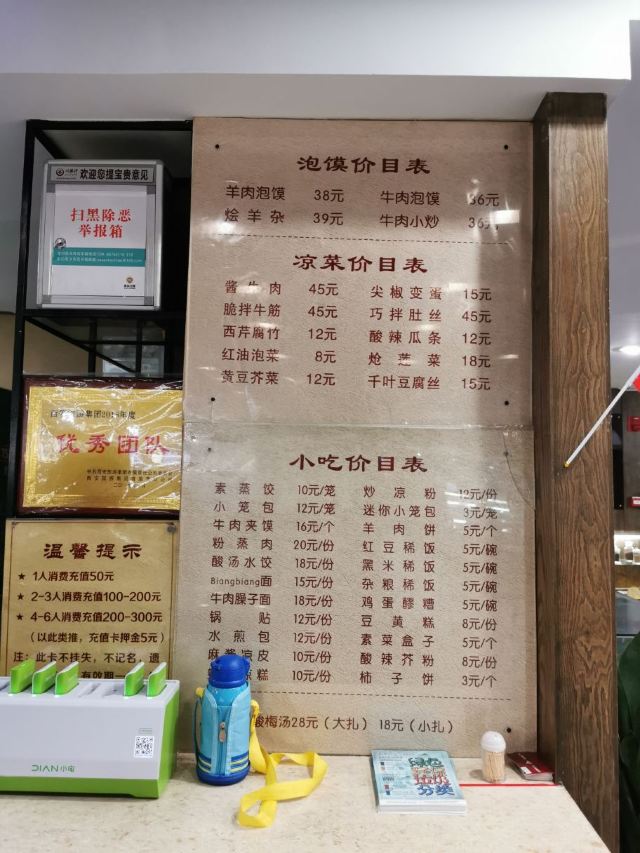 欢迎您提宝贵意见
扫黑除恶
举报箱
优秀团队
温馨提示
★ 1人消费充值50元
★ 2-3人消费充值100-200元
★ 4-6人消费充值200-300元
(以此类推，充值卡押金5元)
注：此卡不挂失，不记名，遗
泡馍价目表
羊肉泡馍 38元 牛肉泡馍 36元
烩羊杂 39元 牛肉小炒 36元
凉菜价目表
酱牛肉 45元 尖椒变蛋 15元
脆拌牛筋 45元 巧拌肚丝 45元
西芹腐竹 12元 酸辣瓜条 12元
红油泡菜 8元 炝莲菜 18元
黄豆芥菜 12元 千叶豆腐丝 15元
小吃价目表
素蒸饺 10元/笼 炒凉粉 12元/份
小笼包 12元/笼 迷你小笼包 3元/笼
牛肉夹馍 16元/个 羊肉饼 5元/个
粉蒸肉 20元/份 红豆稀饭 5元/碗
酸汤水饺 18元/份 黑米稀饭 5元/碗
Biangbiang面 15元/份 杂粮稀饭 5元/碗
牛肉臊子面 18元/份 鸡蛋醪糟 5元/碗
锅贴 12元/份 豆黄糕 8元/份
水煎包 12元/份 素菜盒子 5元/个
麻酱凉皮 10元/份 酸辣芥粉 8元/份
糕 10元/份 柿子饼 3元/个
酸梅汤28元（大扎） 18元（小扎）
DIAN小电
绿色
垃圾
分类